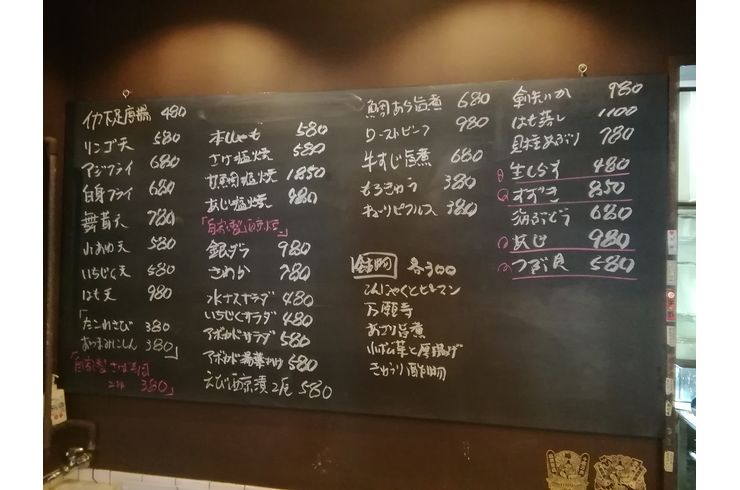 イカ下足唐揚 480
リンゴ天 580
アジフライ 680
白身フライ 680
舞茸天 780
小あゆ天 580
いちじく天 580
はも天 980
「たこわさび 380
おつまみにしん 380」
「自家製さば寿司
2ヶ 380」
本ししゃも 580
さけ塩焼 580
甘鯛塩焼 1850
あじ塩焼 980
「自家製西京焼」
銀ダラ 980
さわら 780
水ナスサラダ 480
いちじくサラダ 480
アボカドサラダ 580
アボカド湯葉かけ 580
えび西京漬2尾 580
鯛あら旨煮 680
ローストビーフ 980
牛すじ旨煮 680
もろきゅう 380
キューリピクルス 380
各300
こんにゃくとピーマン
万願寺
あさり旨煮
小松菜と厚揚げ
きゅうり酢物
剣先いか 980
はも蒸し 1100
貝柱あぶり 780
生しらす 480
すずき 850
海ぶどう 680
あじ 980
つぶ貝 580